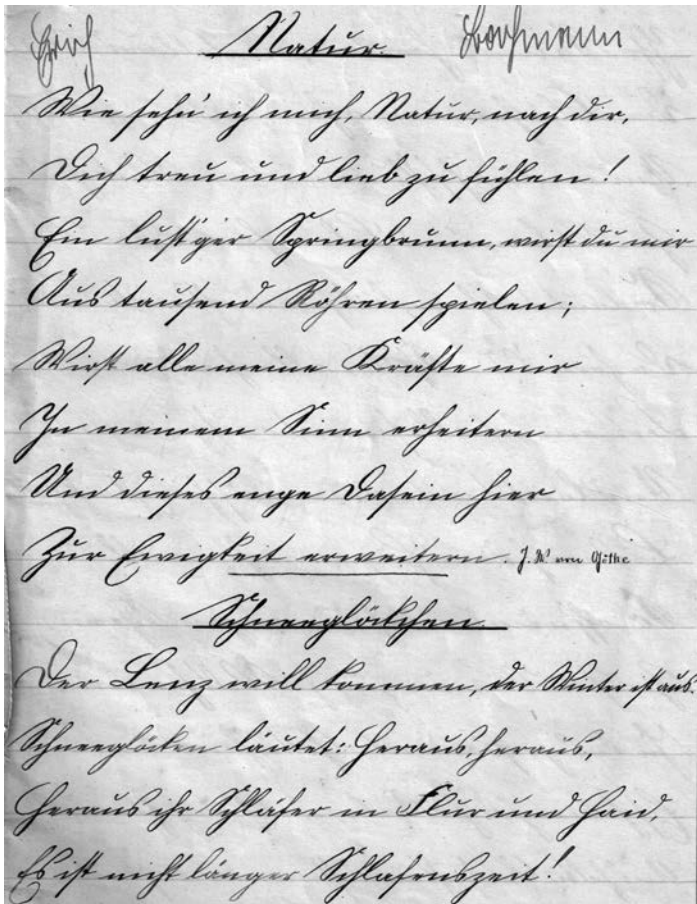 Erich Natur.
Wie sehn' ich mich, Natur, nach dir,
Dich treu und lieb zu fühlen!
Ein lust'ger Springbrunn, wirst du mir
Aus tausend Röhren spielen;
Wirst alle meine Kräfte mir
In meinem Sinn erheitern
Und dieses enge Dasein hier
Zur Ewigkeit erweitern. J. W. von Göthe
Schneeglöckchen.
Der Lenz will kommen, der Winter ist aus.
Schneeglöcken läutet: Heraus, heraus,
Heraus ihr Schläfer in Flur und Haid,
Es ist nicht länger Schlafenszeit!